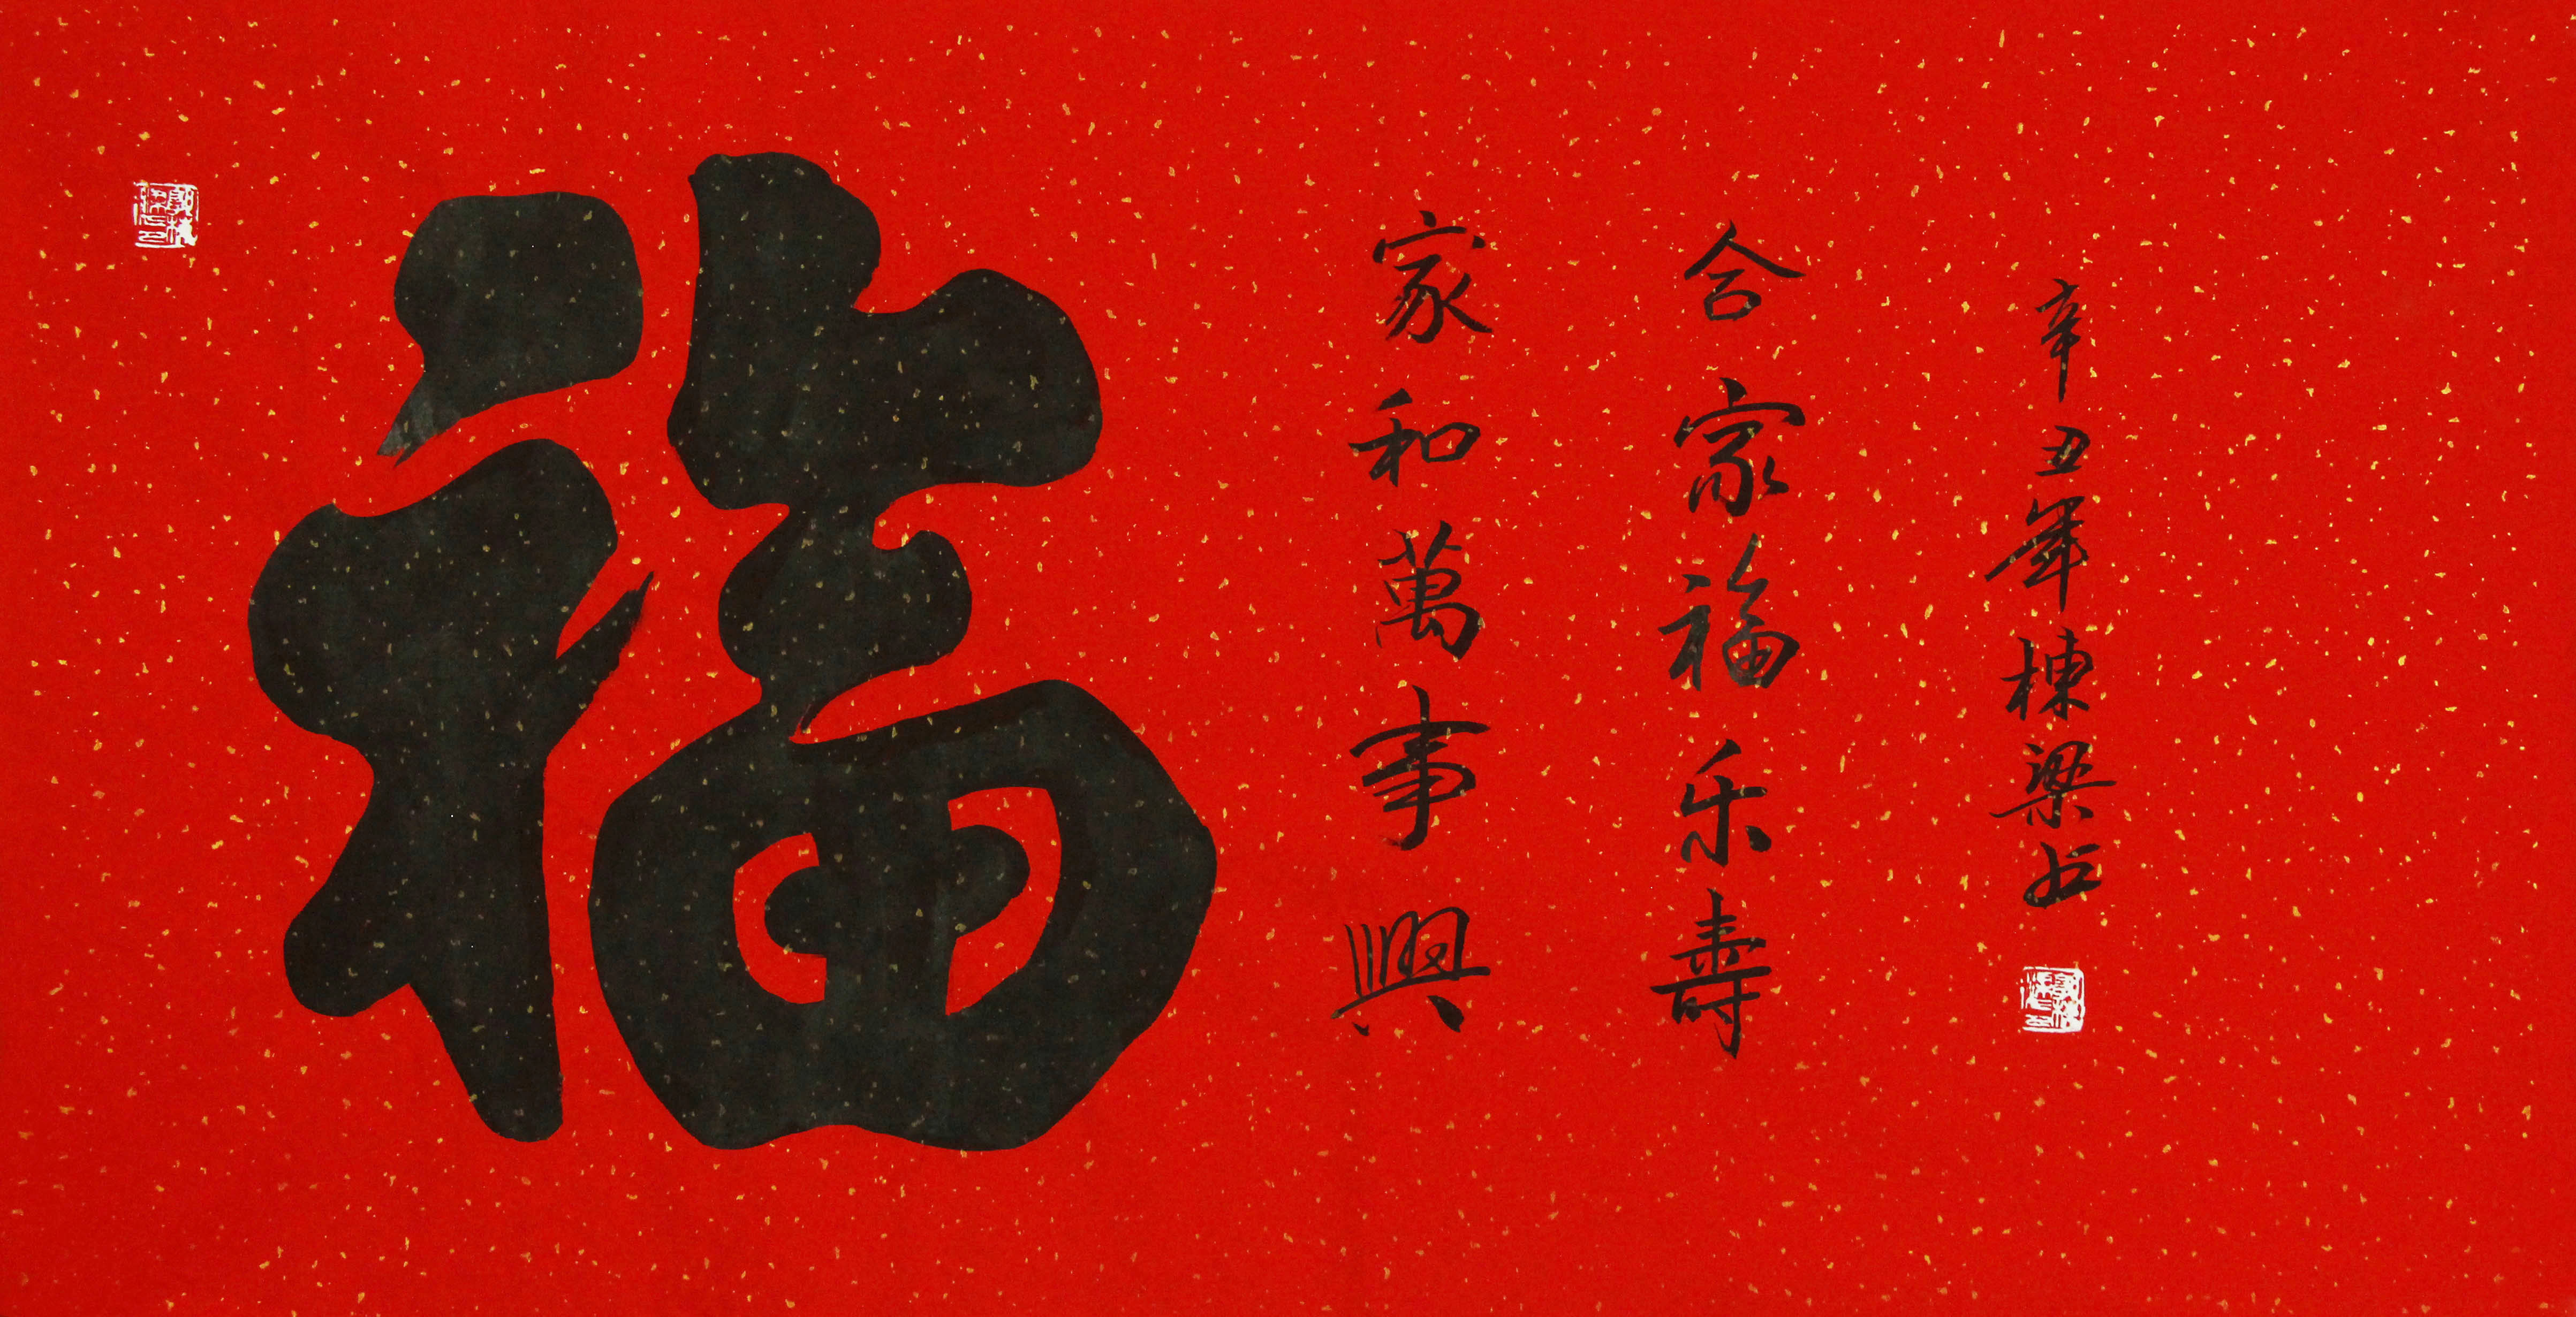 福
家和萬事興
合家福乐壽
辛丑年棟梁书